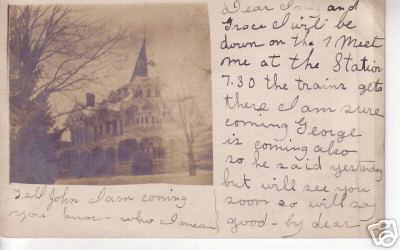 Dear and
Grace I will be
down on the 7 Meet
me at the Station
7.30 the trains gets
there I am sure
coming George
is coming also
so he said yesterday
but will see you
soon so will say
good-by dear
Tell John I am coming
you know - who I mean